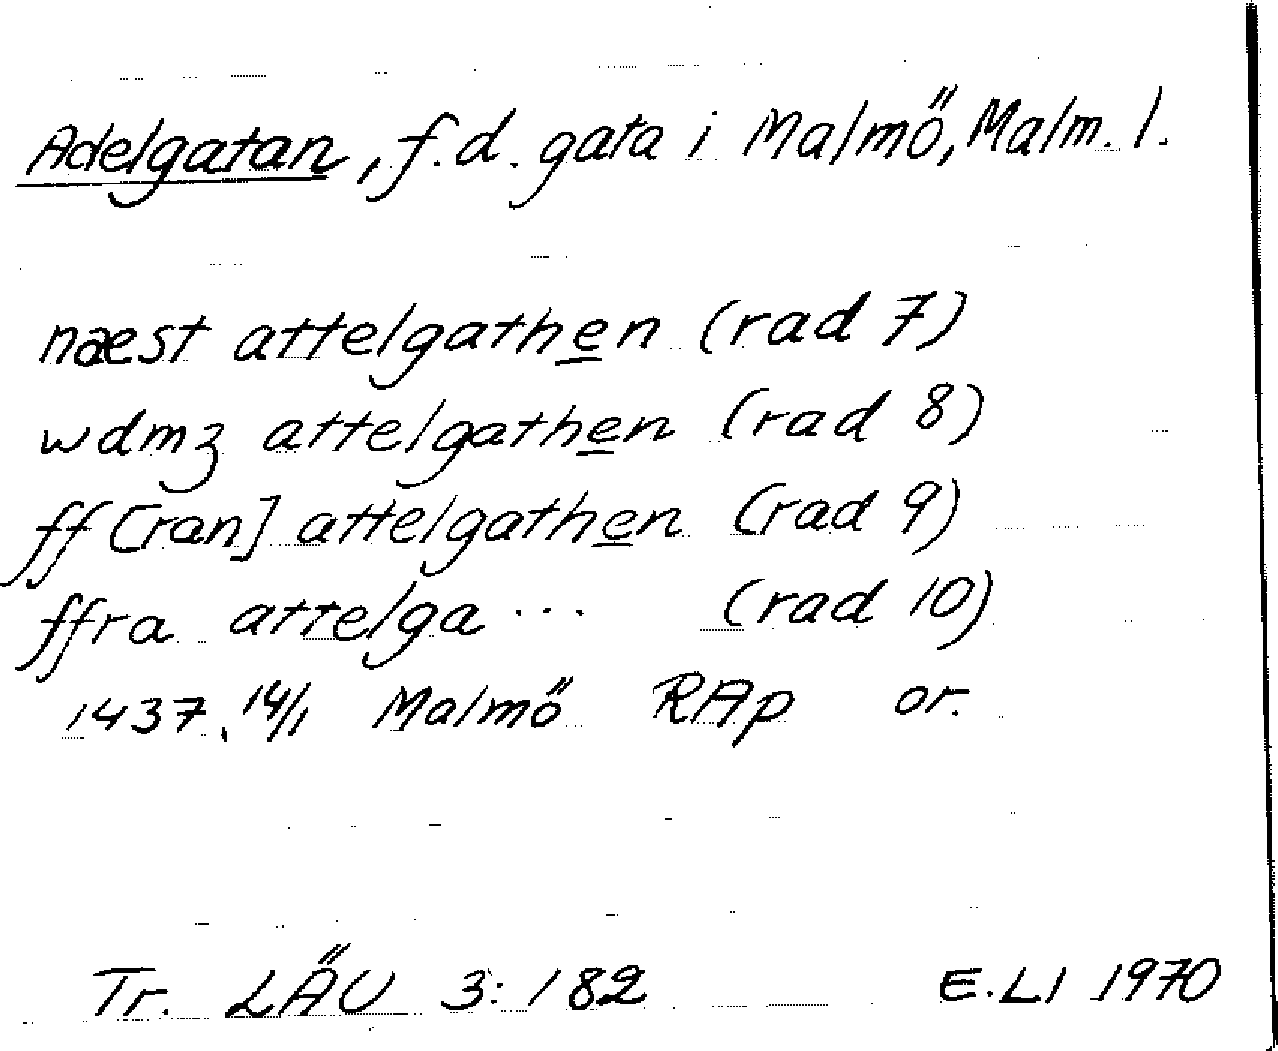 Adelgatan, f.d. gata i Malmö, Malm. l.
næst attelgathen (rad 7)
wdmʒ attelgathen (rad 8)
ff[ran] attelgathen (rad 9)
ffra attelga... (rad 10)
1437, 14/1 Malmö RAp or.
Tr. LÄU 3:182 E.LI 1970